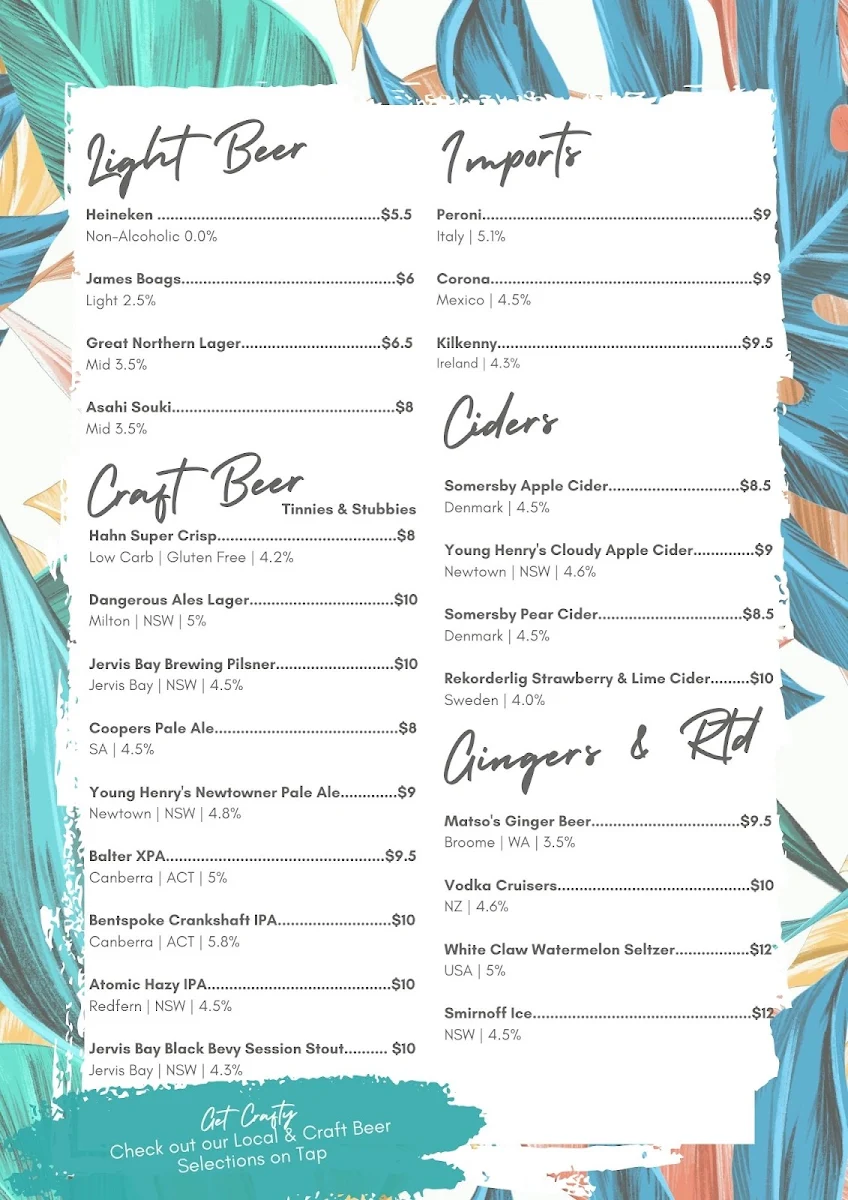 Light Beer
Heineken ....................................................$5.5
Non-Alcoholic 0.0%
James Boags..................................................$6
Light 2.5%
Great Northern Lager.................................$6.5
Mid 3.5%
Asahi Souki....................................................$8
Mid 3.5%
Craft Beer
Tinnies & Stubbies
Hahn Super Crisp..........................................$8
Low Carb | Gluten Free | 4.2%
Dangerous Ales Lager..................................$10
Milton | NSW | 5%
Jervis Bay Brewing Pilsner............................$10
Jervis Bay | NSW | 4.5%
Coopers Pale Ale...........................................$8
SA | 4.5%
Young Henry's Newtowner Pale Ale.............$9
Newtown | NSW | 4.8%
Balter XPA...................................................$9.5
Canberra | ACT | 5%
Bentspoke Crankshaft IPA..........................$10
Canberra | ACT | 5.8%
Atomic Hazy IPA...........................................$10
Redfern | NSW | 4.5%
Jervis Bay Black Bevy Session Stout.......... $10
Jervis Bay | NSW | 4.3%
Get Crafty
Check out our Local & Craft Beer
Selections on Tap
Imports
Peroni..............................................................$9
Italy | 5.1%
Corona............................................................$9
Mexico | 4.5%
Kilkenny.........................................................$9.5
Ireland | 4.3%
Ciders
Somersby Apple Cider..............................$8.5
Denmark | 4.5%
Young Henry's Cloudy Apple Cider..............$9
Newtown | NSW | 4.6%
Somersby Pear Cider.................................$8.5
Denmark | 4.5%
Rekorderlig Strawberry & Lime Cider.........$10
Sweden | 4.0%
Gingers & Rtd
Matso's Ginger Beer..................................$9.5
Broome | WA | 3.5%
Vodka Cruisers.............................................$10
NZ | 4.6%
White Claw Watermelon Seltzer.................$12
USA | 5%
Smirnoff Ice...................................................$12
NSW | 4.5%